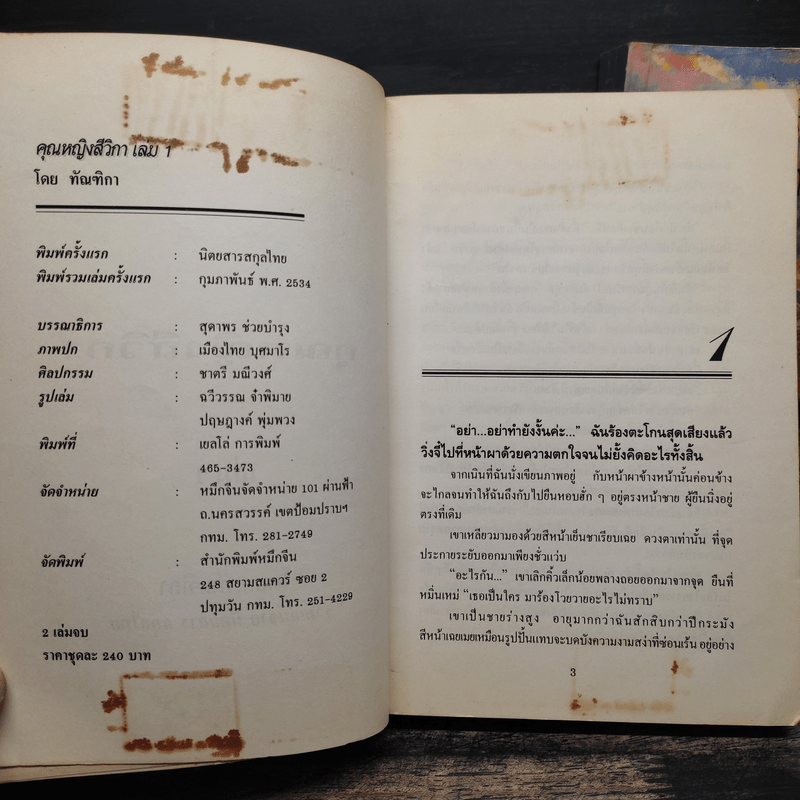 คุณหญิงสีวิกา เล่ม 1
โดย ทัณฑิกา
พิมพ์ครั้งแรก : นิตยสารสกุลไทย
พิมพ์รวมเล่มครั้งแรก : กุมภาพันธ์ พ.ศ. 2534
บรรณาธิการ : สุดาพร ช่วยบำรุง
ภาพปก : เมืองไทย บุศมาโร
ศิลปกรรม : ชาตรี มณีวงศ์
รูปเล่ม : ฉวีวรรณ จ๋าพิมาย
ปฤษฎางค์ พุ่มพวง
พิมพ์ที่ : เยลโล่ การพิมพ์
465-3473
จัดจำหน่าย : หมึกจีนจัดจำหน่าย 101 ผ่านฟ้า
ถ.นครสวรรค์ เขตป้อมปราบฯ
กทม. โทร. 281-2749
จัดพิมพ์ : สำนักพิมพ์หมึกจีน
248 สยามสแควร์ ซอย 2
ปทุมวัน กทม. โทร. 251-4229
2 เล่มจบ
ราคาชุดละ 240 บาท
1
"อย่า...อย่าทำยังงั้นค่ะ..." ฉันร้องตะโกนสุดเสียงแล้ว
วิ่งจี๋ไปที่หน้าผาด้วยความตกใจจนไม่ยั้งคิดอะไรทั้งสิ้น
จากเนินที่ฉันนั่งเขียนภาพอยู่ กับหน้าผาข้างหน้านั้นค่อนข้าง
จะไกลจนทำให้ฉันถึงกับไปยืนหอบฮั่ก ๆ อยู่ตรงหน้าชาย ผู้ยืนนิ่งอยู่
ตรงที่เดิม
เขาเหลียวมามองด้วยสีหน้าเย็นชาเรียบเฉย ดวงตาเท่านั้น ที่จุด
ประกายระยับออกมาเพียงชั่วแว่บ
"อะไรกัน..." เขาเลิกคิ้วเล็กน้อยพลางถอยออกมาจากจุด ยืนที่
หมิ่นเหม่ "เธอเป็นใคร มาร้องโวยวายอะไรไม่ทราบ"
เขาเป็นชายร่างสูง อายุมากกว่าฉันสักสิบกว่าปีกระมัง
สีหน้าเฉยเมยเหมือนรูปปั้นแทบจะบดบังความงามสง่าที่ซ่อนเร้น อยู่อย่าง
3